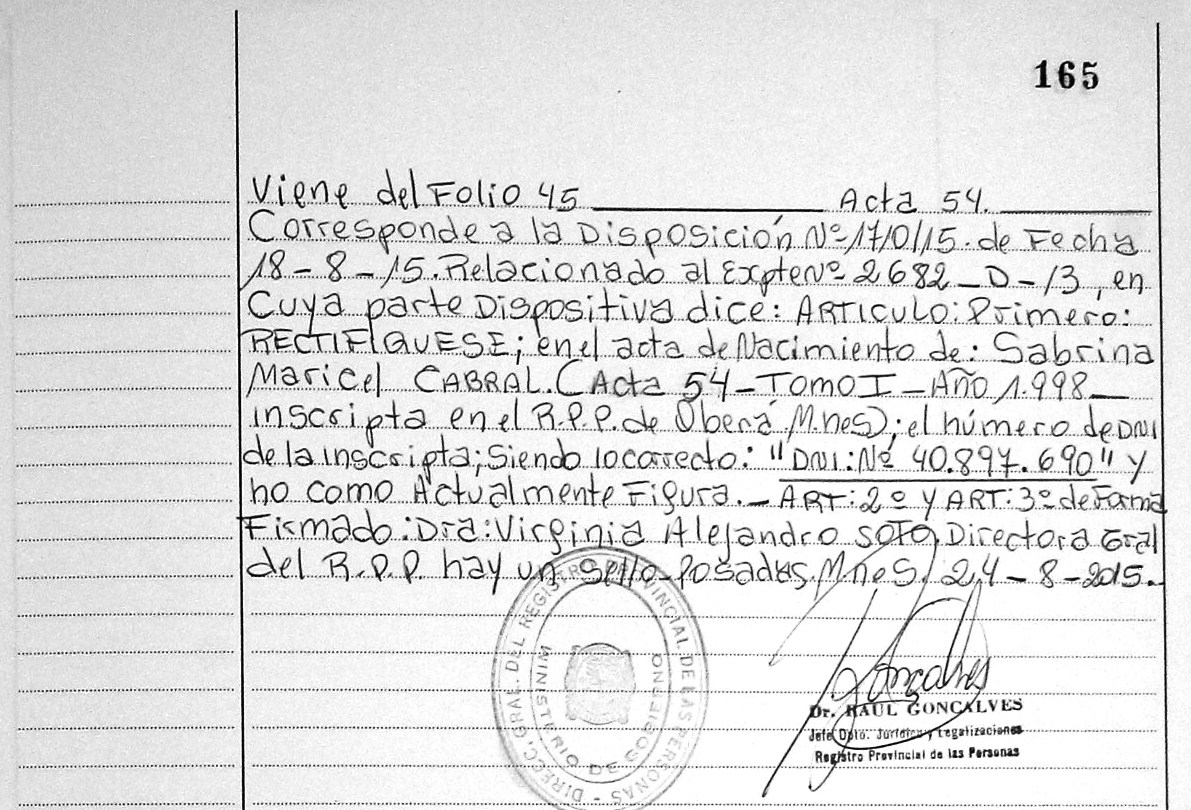 165
Viene del Folio 45 ____________ Acta 54. ________
Corresponde a la Disposición Nº1710/15. de Fecha
18-8-15. Relacionado al Expte Nº 2682-D-13, en
Cuya parte Dispositiva dice: ARTICULO: Primero:
RECTIFIQUESE; en el acta de Nacimiento de: Sabrina
Maricel CABRAL. (Acta 54-Tomo I-Año 1.998-
inscripta en el R.P.P. de Oberá Mnes); el número de DNI
de la inscripta; Siendo lo correcto: "DNI: Nº 40.897.690" y
no como Actualmente Figura.- ART: 2º Y ART: 3º de Forma
Firmado: Dra: Virginia Alejandro SOTO, Directora Gral
del R.P.P. hay un sello-Posadas, Mnes, 24-8-2015.-
DIRECC. GRAL. DEL REGISTRO PROVINCIAL DE LAS PERSONAS -
MINISTERIO DE GOBIERNO
Goncalves
Dr. RAUL GONCALVES
Jefe Dpto. Jurídico y Legalizaciones
Registro Provincial de las Personas